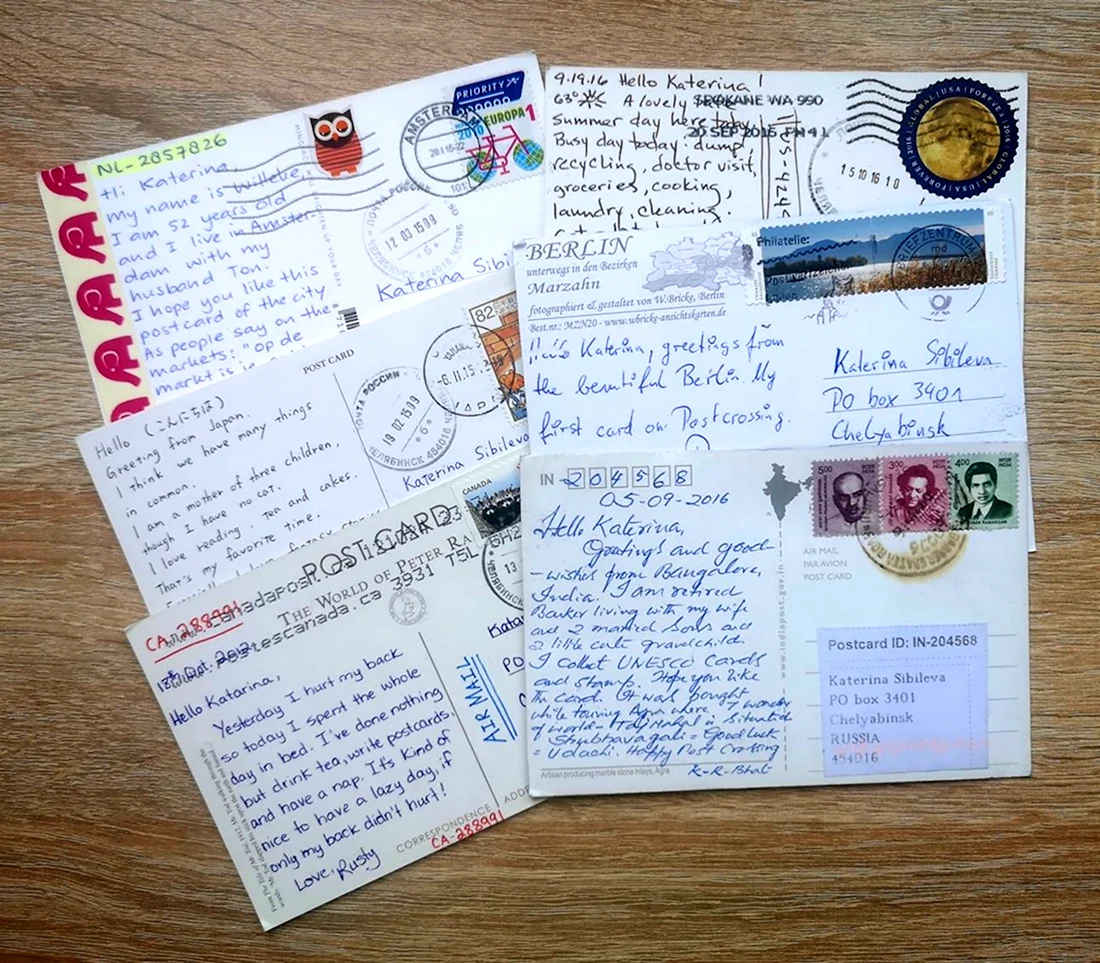 NL-2857826
Hi Katerina,
my name is Willeke,
I am 52 years old
and I live in Amster-
dam with my
husband Ton.
I hope you like this
postcard of the city
As people say on the
markets: "op de
markt is
PRIORITY
2010
EUROPA 1
AMSTERDAM
ПОЧТА РОССИИ
12 03 15 09
Katerina Sibil
9.19.16 Hello Katerina!
63° A lovely
summer day here today.
Busy day today: dump,
recycling, doctor visit,
groceries, cooking,
laundry, cleaning.
SPOKANE WA 990
20 SEP 2016 PM 4 L
15 10 16 10
GLOBAL | USA | FOREVER | 2016
POST CARD
Hello (こんにちは)
Greeting from Japan.
I think we have many things
in common.
I am a mother of three children,
though I have no cat.
I love reading, Tea and cakes.
That's my favorite
time.
82
-6.11.15
ПОЧТА РОССИИ
19 02 15 09
ЧЕЛЯБИНСК 454016
Katerina Sibileva
BERLIN
unterwegs in den Bezirken
Marzahn
fotographiert & gestaltet von W.Bricke, Berlin
Best.nr.: MZN20 - www.wbricke-ansichtskarten.de
Philatelie:
BRIEFZENTRUM
Katerina, greetings from
the beautiful Berlin. My
first card on Postcrossing.
Katerina Sibileva
PO box 3401
Chelyabinsk
POST CARD
THE WORLD OF PETER RA
canadapost.ca
postescanada.ca
3931 T5L
CANADA
CA-288991
Oct. 2012
Hello Katarina,
Yesterday I hurt my back
so today I spent the whole
day in bed. I've done nothing
but drink tea, write postcards.
and have a nap. It's kind of
nice to have a lazy day, if
only my back didn't hurt!
Love, Rusty
AIR MAIL
Kata
PO
CORRESPONDENCE
ADDRE
CA-288991
IN 204568
05-09-2016
Hello Katerina,
Greetings and good-
-wishes from Bangalore,
India. I am retired
Banker living with my wife
and 2 married Sons and
a little cute grandchild.
I collect UNESCO Cards
and stamp. Hope you like
the card. It was bought
while touring Agra where 7 wonder
of world - Taj Mahal is situated
Shubhavagali = Good luck
= Udachi. Happy Post Crossing
K-R-Bhat
Artisan producing marble stone inlays, Agra
www.indiapost.gov.in
500
300
400
AIR MAIL
PAR AVION
POST CARD
Postcard ID: IN-204568
Katerina Sibileva
PO box 3401
Chelyabinsk
RUSSIA
454016